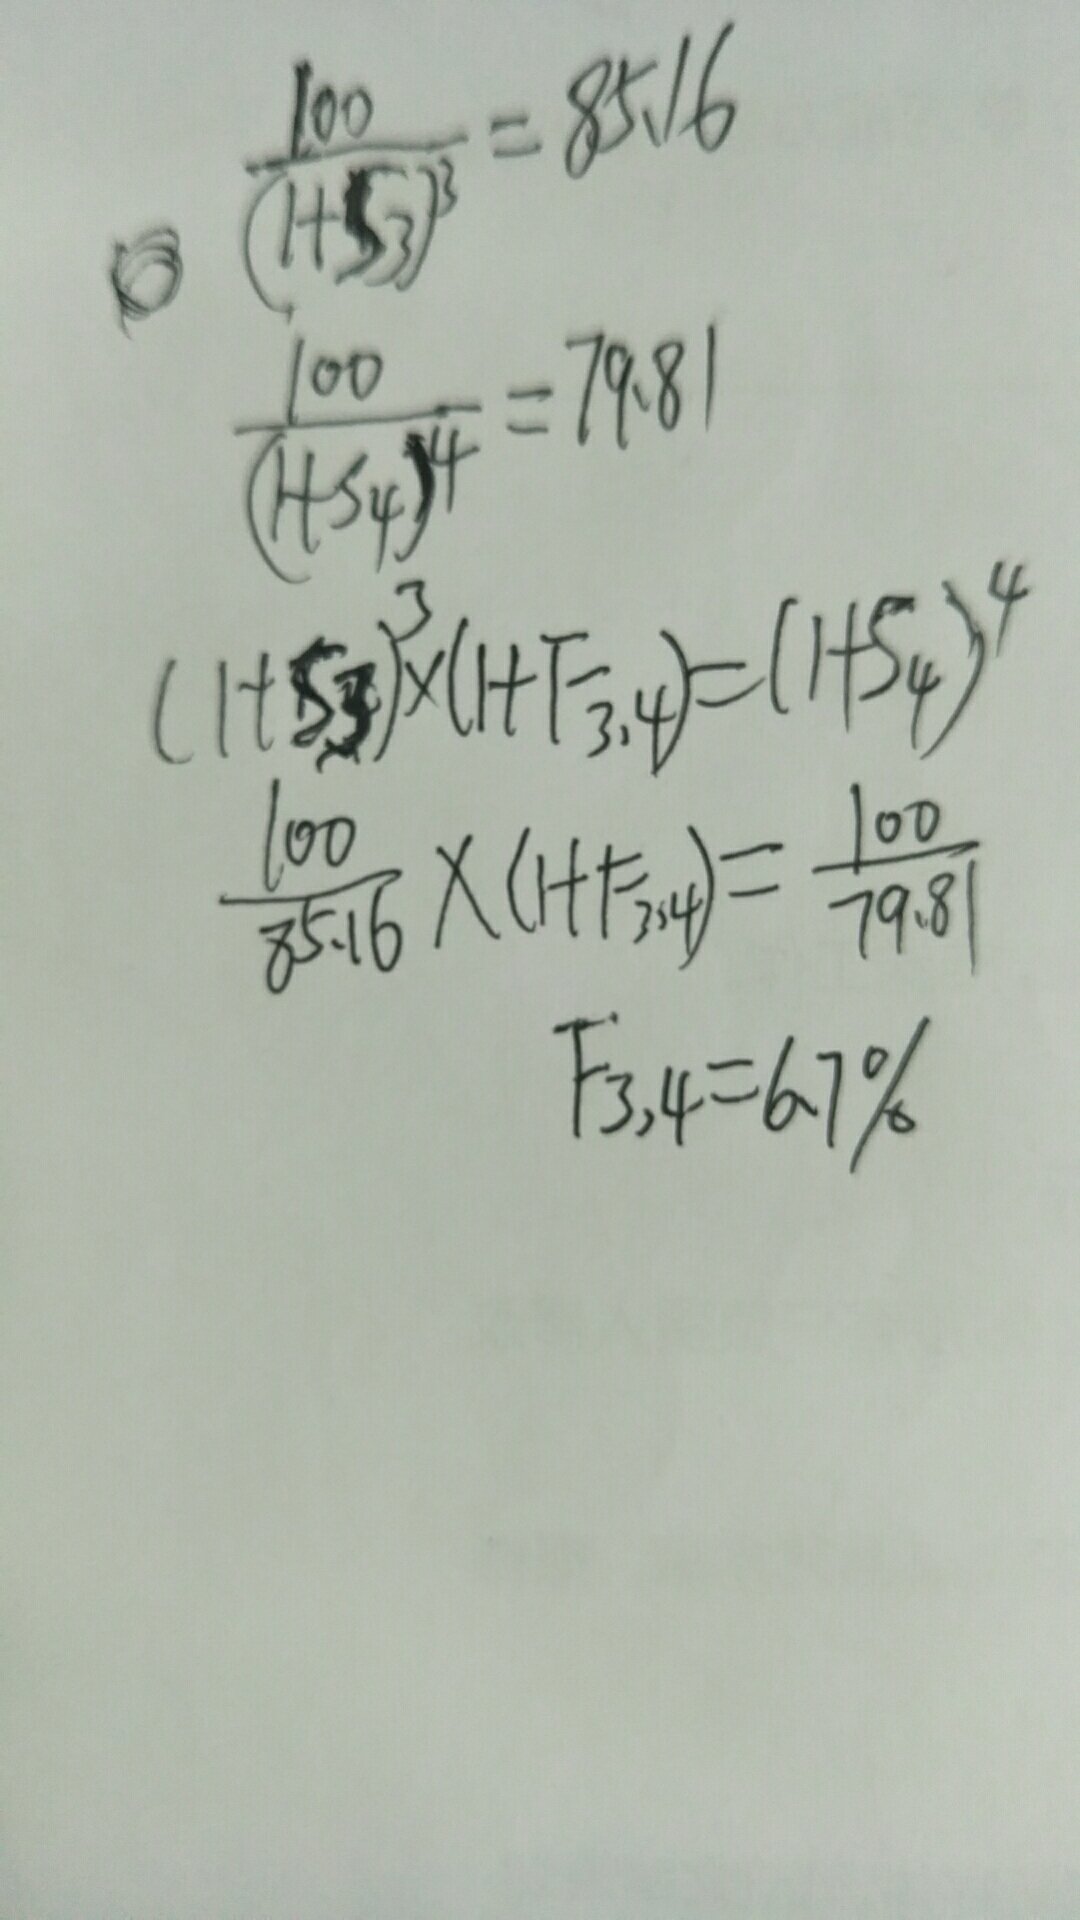 100/(1+S3)^3 = 85.16
100/(1+S4)^4 = 79.81
(1+S3)^3×(1+F3,4)=(1+S4)^4
100/85.16 ×(1+F3,4)= 100/79.81
F3,4=6.7%